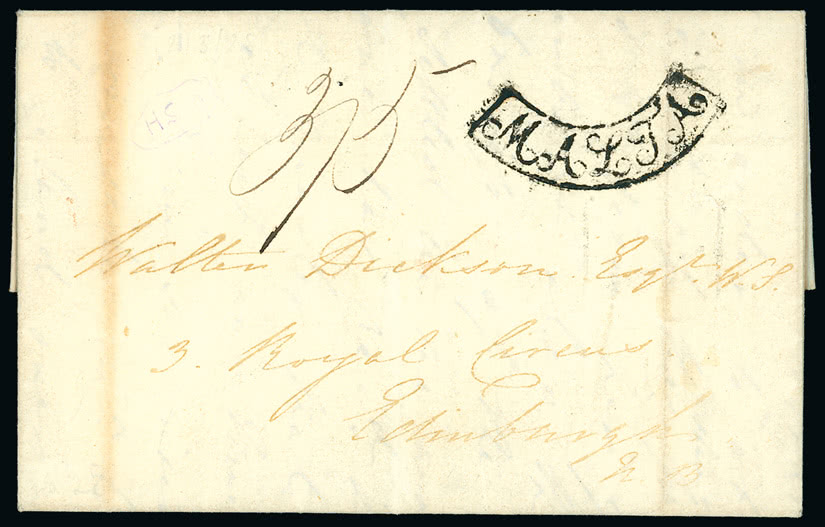 3/5
MALTA
Walter Dickson Esqr. W.S.
3. Royal Circus
Edinburgh
N.B